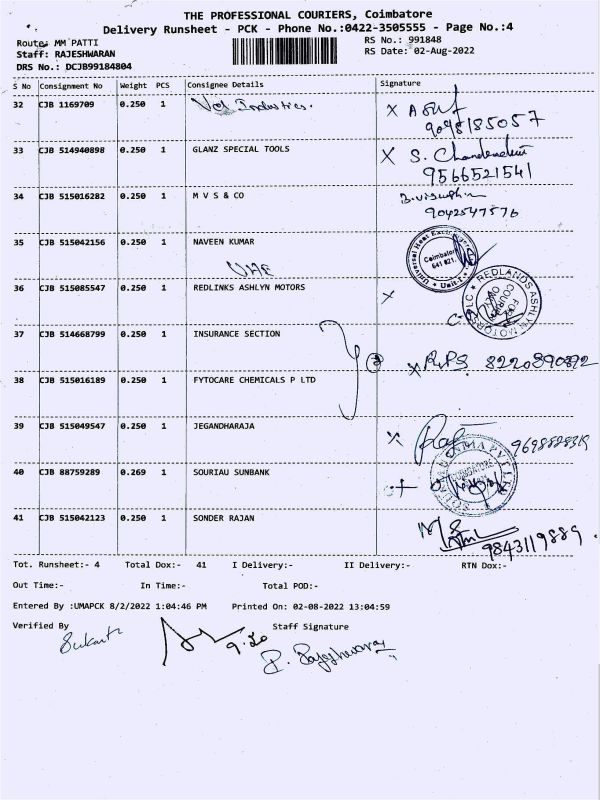 THE PROFESSIONAL COURIERS, Coimbatore
Delivery Runsheet - PCK - Phone No.:0422-3505555 - Page No.:4
Route: MM PATTI
RS No.: 991848
Staff: RAJESHWARAN
RS Date: 02-Aug-2022
DRS No.: DCJB99184804
S No Consignment No Weight PCS Consignee Details Signature
32 CJB 1169709 0.250 1 Industries. X
9048185057
33 CJB 514940898 0.250 1 GLANZ SPECIAL TOOLS X S.
9566521541
34 CJB 515016282 0.250 1 M V S & CO
9042547576
35 CJB 515042156 0.250 1 NAVEEN KUMAR
UHE
Universal Heat Exchangers
Coimbatore
641 021.
Unit-I
36 CJB 515085547 0.250 1 REDLINKS ASHLYN MOTORS X
REDLANDS ASHLYN MOTORS PLC
FOR COURIER ONLY
37 CJB 514668799 0.250 1 INSURANCE SECTION
X RPS 8220890892
38 CJB 515016189 0.250 1 FYTOCARE CHEMICALS P LTD
39 CJB 515049547 0.250 1 JEGANDHARAJA X
40 CJB 88759289 0.269 1 SOURIAU SUNBANK
41 CJB 515042123 0.250 1 SONDER RAJAN
9843119889
Tot. Runsheet:- 4 Total Dox:- 41 I Delivery:- II Delivery:- RTN Dox:-
Out Time:- In Time:- Total POD:-
Entered By :UMAPCK 8/2/2022 1:04:46 PM Printed On: 02-08-2022 13:04:59
Verified By Staff Signature
9.20
P. Rajeshwaran